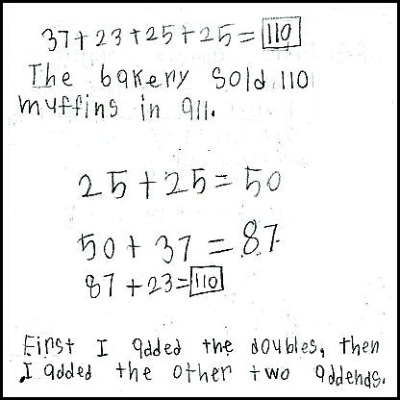 37+23+25+25=110
The bakery sold 110
muffins in all.
25+25=50
50+37=87
87+23=110
First I added the doubles, then
I added the other two addends.